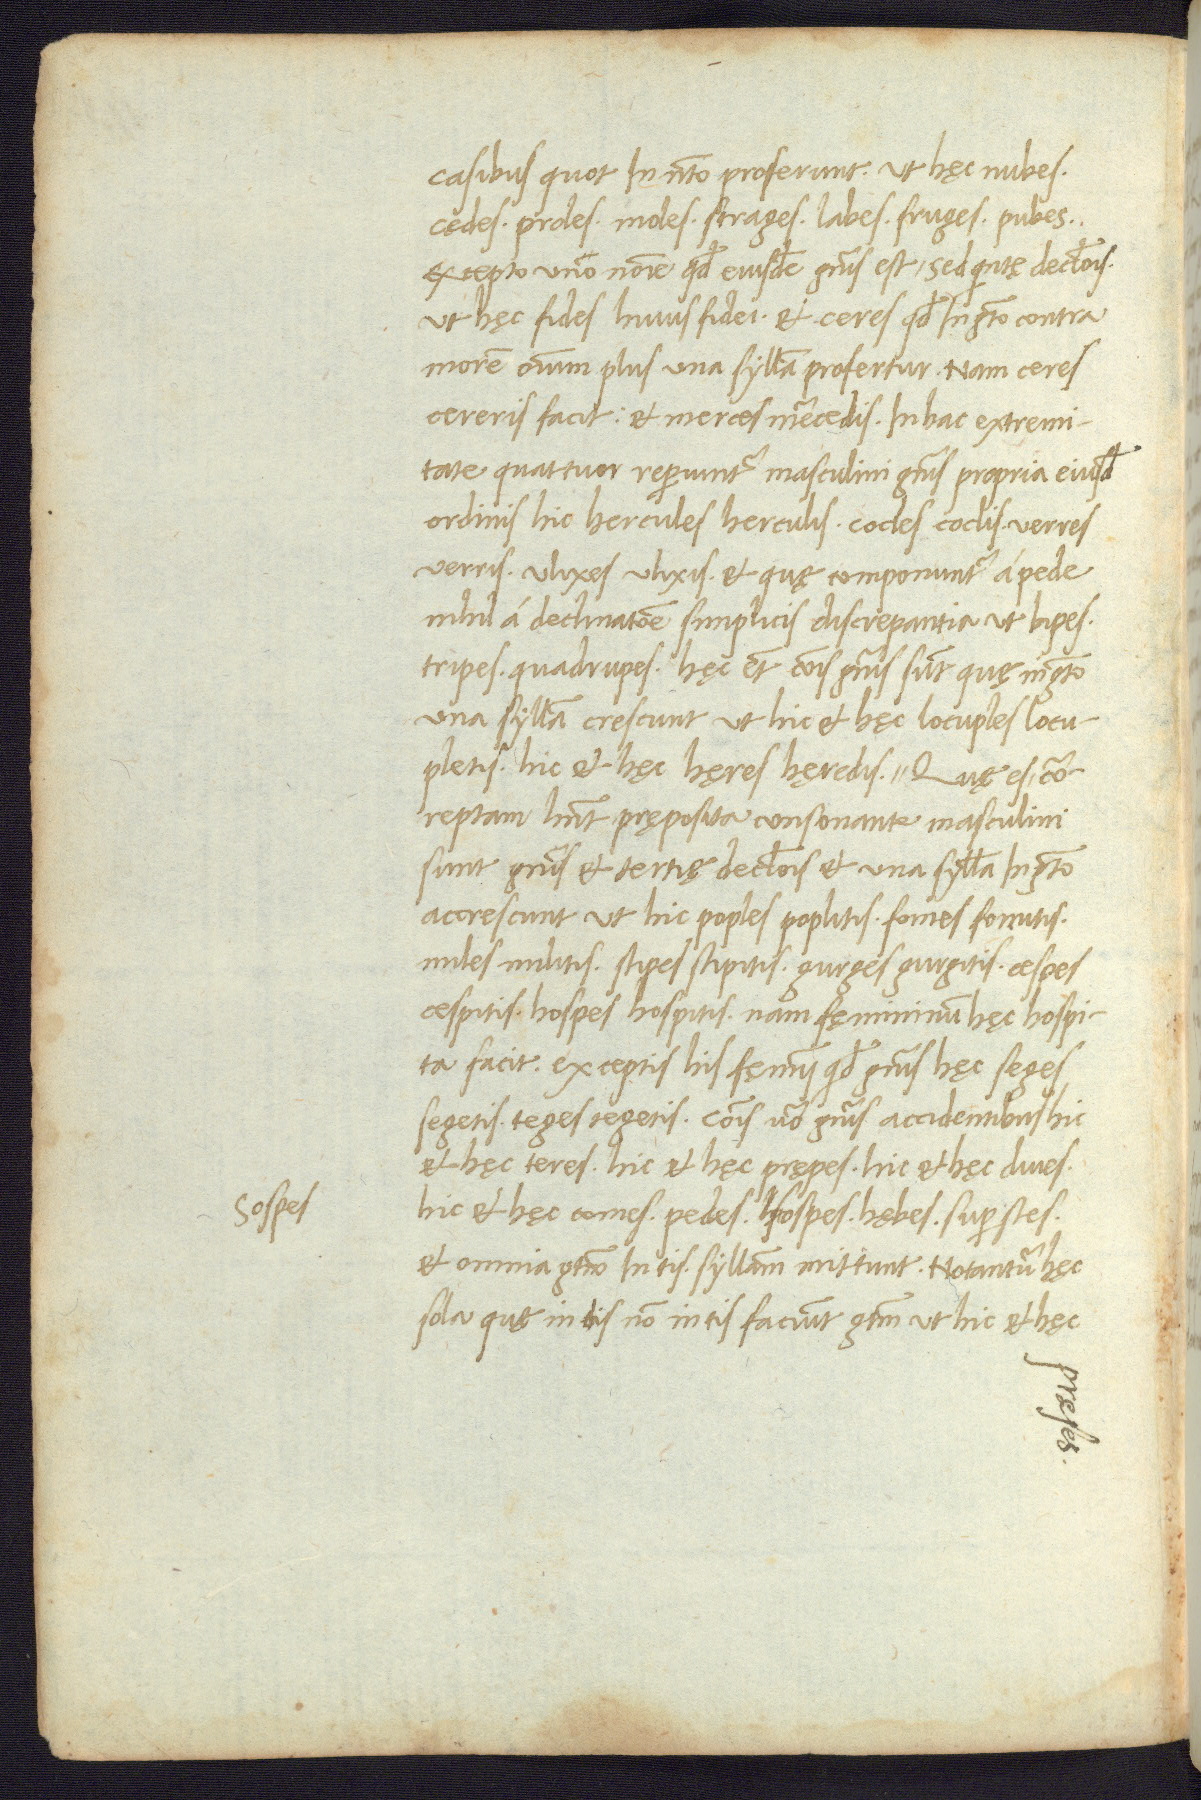 casibus quot In nt̄o proferunt. ut hęc nubes.
cędes. proles. moles. strages. labes. fruges. pubes.
excepto uno nōie qđ eiusđe gn̄is est, sed quintę decl̄ois.
ut hęc fides huius fidei. et ceres qđ In gt̄o contra
morē oīum plus una syll̄a profertur. Nam ceres
cereris facit: et merces m̄cedis. In hac extremi-
tate quattuor reperiunt᷑ masculini gn̄is propria eiusđ
ordinis hic hercules herculis. cocles coclis. verres
verris. ulixes ulixis. et quę componunt᷑ á pede
nihil á declinatōe simplicis discrepantia ut bipes.
tripes. quadrupes. hęc et̄ cōis gn̄is sūt quę in gt̄o
una syll̄a crescunt ut hic et hęc locuples locu-
pletis. hic et hęc hęres hęredis. // Quę es cōr-
reptam hn̄t pręposita consonante masculini
sunt gn̄is et tertię decl̄ois et una syll̄a In gt̄o
accrescunt ut hic poples poplitis. fomes fomitis.
miles militis. stipes stipitis. gurges gurgitis. cespes
cespitis. hospes hospitis. nam fęmininū hęc hospi-
ta facit. exceptis his fęmī qđ gn̄is hęc seges
segetis. teges tegetis. cōis ūo gn̄is accidentibus hic
et hęc teres. hic et hęc prępes. hic et hęc diues.
hic et hęc comes. pedes. sospes. hębes. superstes.
et omnia gt̄io In tis. syllam mittunt. Notant᷑ hęc
sola quę in dis nō in tis faciūt gt̄m ut hic et hęc
pręses.
Sospes